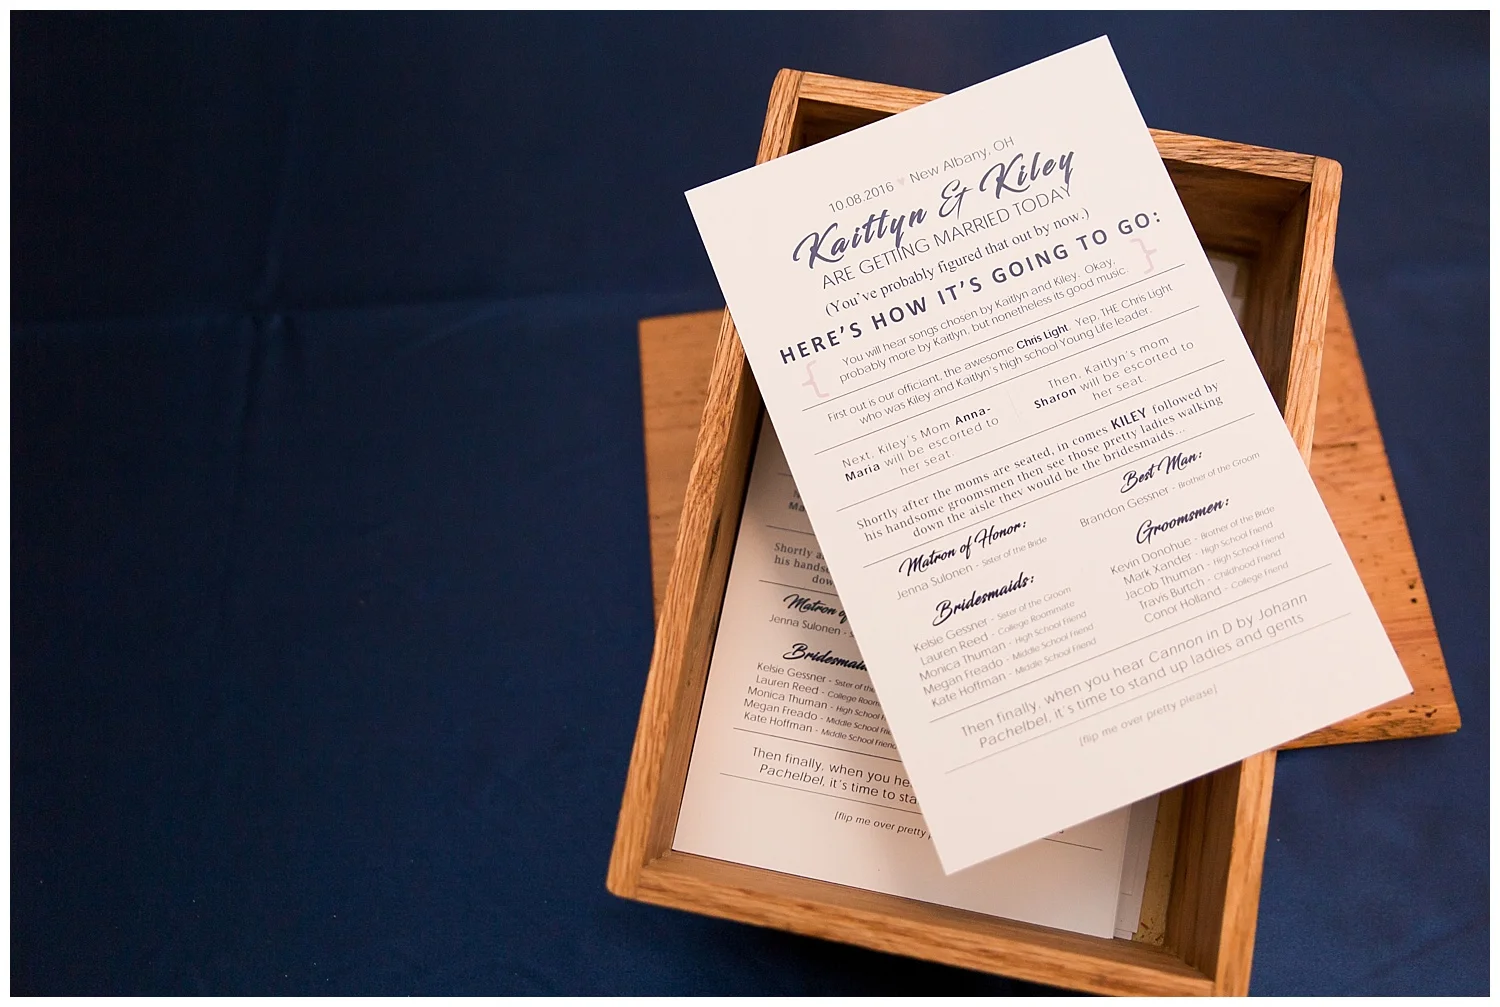 10.08.2016 ♥ New Albany, OH
Kaitlyn & Kiley
ARE GETTING MARRIED TODAY
(You've probably figured that out by now.)
HERE'S HOW IT'S GOING TO GO:
{ You will hear songs chosen by Kaitlyn and Kiley. Okay, }
probably more by Kaitlyn, but nonetheless its good music.
First out is our officiant, the awesome Chris Light. Yep, THE Chris Light
who was Kiley and Kaitlyn's high school Young Life leader.
Next, Kiley's Mom Anna-
Maria will be escorted to
her seat.
Then, Kaitlyn's mom
Sharon will be escorted to
her seat.
Shortly after the moms are seated, in comes KILEY followed by
his handsome groomsmen then see those pretty ladies walking
down the aisle they would be the bridesmaids...
Matron of Honor:
Jenna Sulonen - Sister of the Bride
Bridesmaids:
Kelsie Gessner - Sister of the Groom
Lauren Reed - College Roommate
Monica Thuman - High School Friend
Megan Freado - Middle School Friend
Kate Hoffman - Middle School Friend
Best Man:
Brandon Gessner - Brother of the Groom
Groomsmen:
Kevin Donohue - Brother of the Bride
Mark Xander - High School Friend
Jacob Thuman - High School Friend
Travis Burtch - Childhood Friend
Conor Holland - College Friend
Then finally, when you hear Cannon in D by Johann
Pachelbel, it's time to stand up ladies and gents
[flip me over pretty please]
Shortly
his hands
dow
Matron of
Jenna Sulonen -
Bridesmai
Kelsie Gessner - Sister of the
Lauren Reed - College Room
Monica Thuman - High School F
Megan Freado - Middle School Fr
Kate Hoffman - Middle School Frien
Then finally, when you he
Pachelbel, it's time to sta
[flip me over pretty